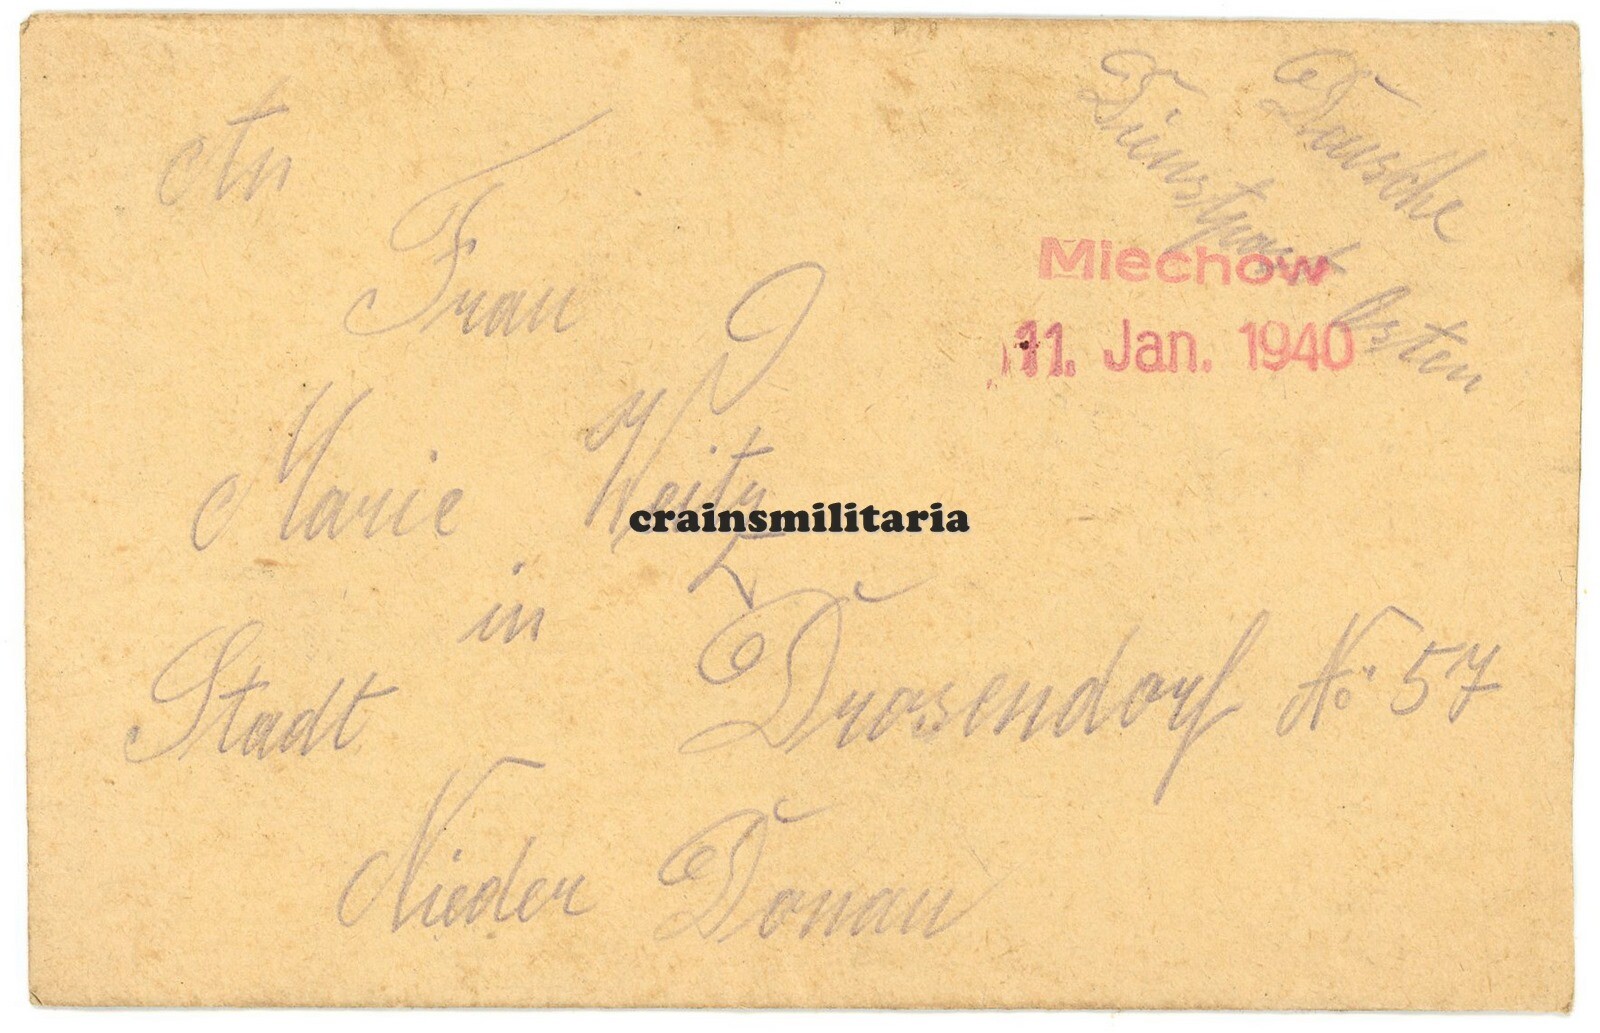 An
Dousche
Dinstpost Osten
Frau
Miechow
11. Jan. 1940
Marie Weitz
crainsmilitaria
in
Stadt Drosendorf No 57
Nieder Donau